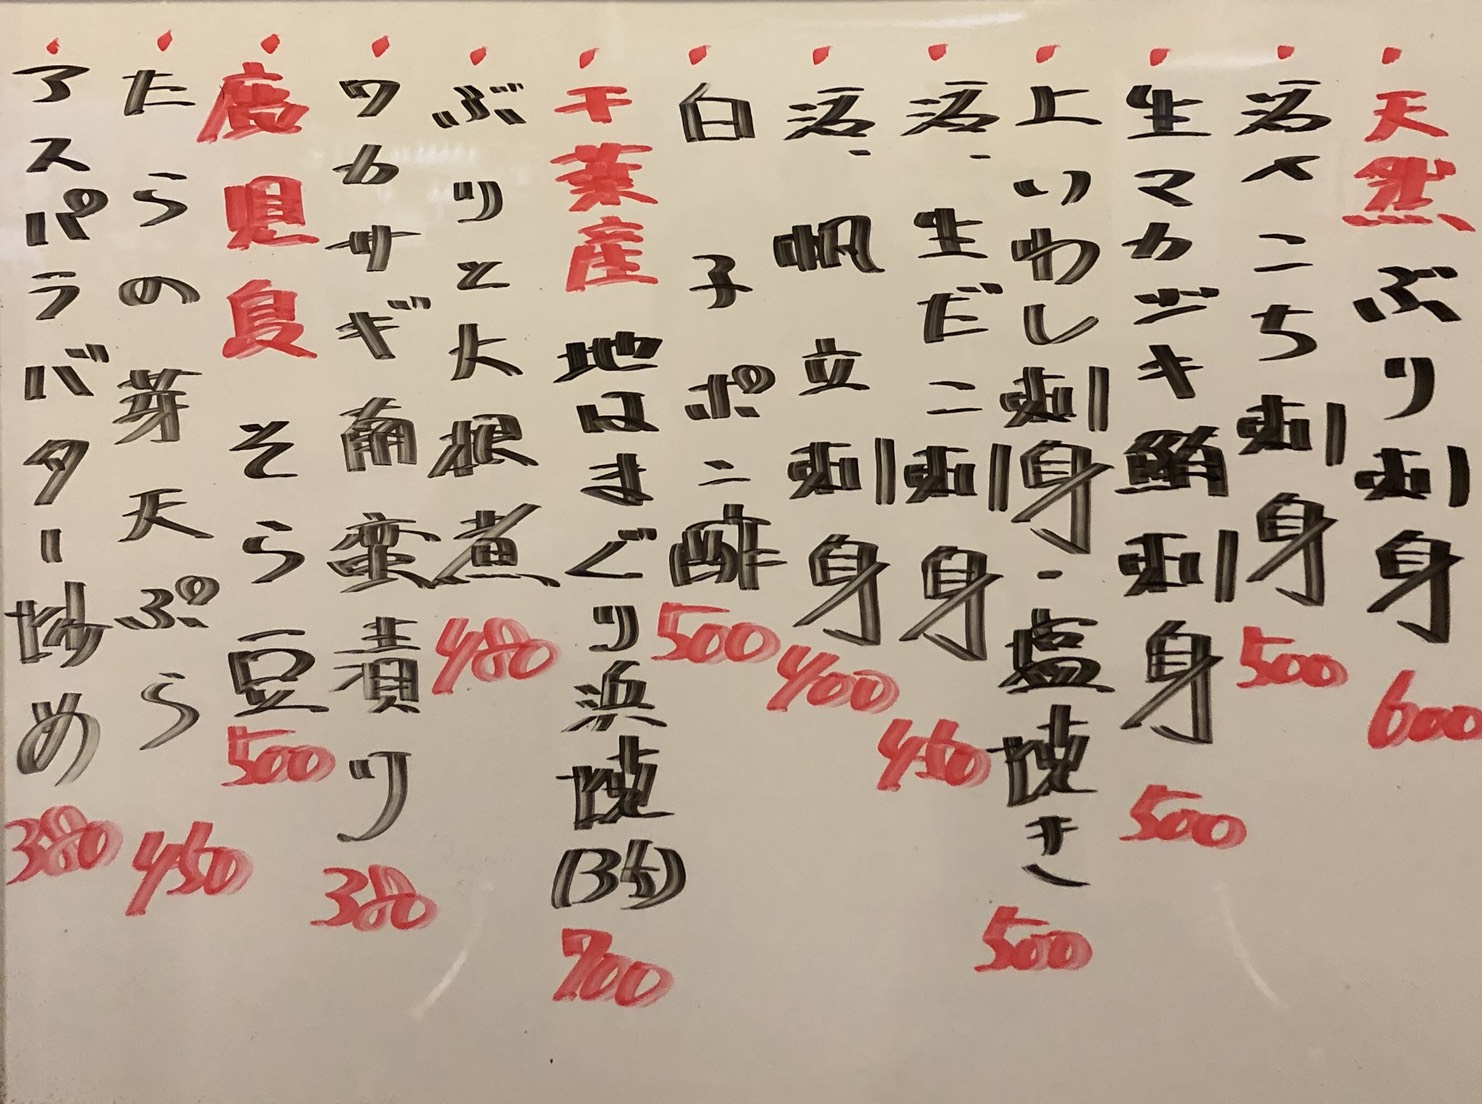 ・天然ぶり刺身 600
・活〆こち刺身 500
・生マカジキ鮪刺身 500
・上いわし刺身・塩焼き 500
・活・生だこ刺身 450
・活・帆立刺身 400
・白子ポン酢 500
・千葉産地はまぐり浜焼 700
・ぶりと大根煮 480
・ワカサギ南蛮漬り 380
・鹿児島そら豆 500
・たらの芽天ぷら 450
・アスパラバター炒め 380